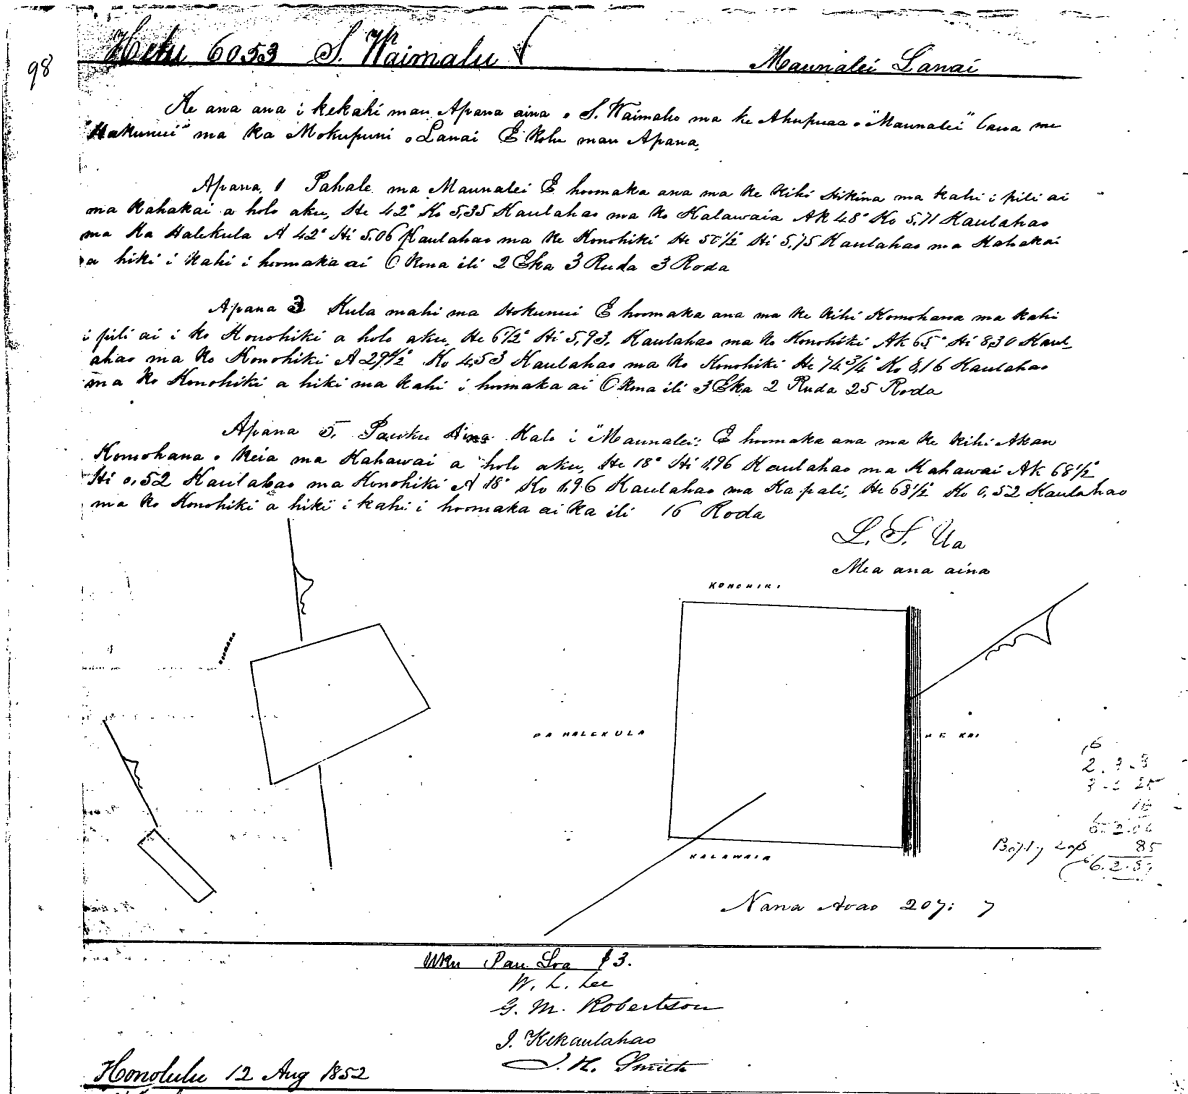 98
Helu 6053 S. Waimalu
Maunalei Lanai
Ke ana ana i kekahi mau Apana aina o S. Waimalu ma ke Ahupuaa o "Maunalei" laua me
"Hokunui" ma ka Mokupuni o Lanai E Kolu mau Apana,
Apana, 1 Pahale ma Maunalei E hoomaka ana ma ke kihi Hikina ma kahi i pili ai
ma kahakai a holo aku, He 42° Ko 5,35 Kaulahao ma ko Kalawaia Ak 48° Ko 5,71 Kaulahao
ma Ka Halekula A 42° Hi 5.06 Kaulahao ma ke Konohiki He 50½ Hi 5,75 Kaulahao ma Kahakai
a hiki i kahi i hoomaka ai O Kona ili 2 Eka 3 Ruda 3 Roda
Apana 3 Kula mahi ma Hokunui E hoomaka ana ma ke kihi Komohana ma kahi
i pili ai i ko Konohiki a holo aku, He 61½ Hi 5,93. Kaulahao ma ko Konohiki Ak 65° Hi 8,30 Kaul_
ahao ma ko Konohiki A 29½ Ko 4,53 Kaulahao ma ko Konohiki He 74¾° Ko 8,16 Kaulahao
ma ko Konohiki a hiki ma kahi i hoomaka ai O Kona ili 3 Eka 2 Ruda 25 Roda
Apana 5. Pauku Aina Kalo i "Maunalei" E hoomaka ana ma ke kihi Akau
Komohana o keia ma Kahawai a holo aku, He 18° Hi 1,96 Kaulahao ma Kahawai Ak 68½
Hi 0,52 Kaulahao ma Konohiki A 18° Ko 1,96 Kaulahao ma Ka pali, He 68½ Ko 0,52 Kaulahao
ma ko Konohiki a hiki i kahi i hoomaka ai ka ili 16 Roda
L. S. Ua
Mea ana aina
KONOHIKI
PA HALEKULA
HE KAI
KALAWAIA
2. 3. 3
3. 2 25
16
85
Nana Aoao 207: 7
Uku Pau Loa $3.
W. L. Lee
G. M. Robertson
J. Kekaulahao
J. H. Smith
Honolulu 12 Aug 1852